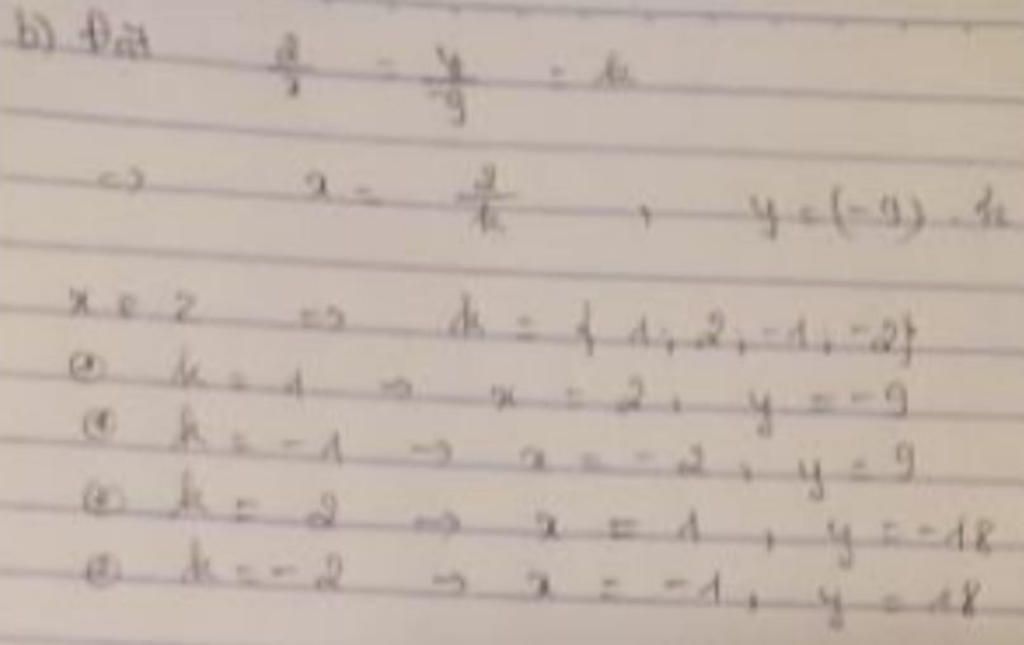 b) Đặt 2/x = y/-9 = k
<=> x = 2/k , y = (-9) . k
x ∈ Z => k = { 1 ; 2 ; -1 ; -2 }
k = 1 -> x = 2 , y = -9
k = -1 -> x = -2 , y = 9
k = 2 => x = 1 , y = -18
k = -2 -> x = -1 , y = 18